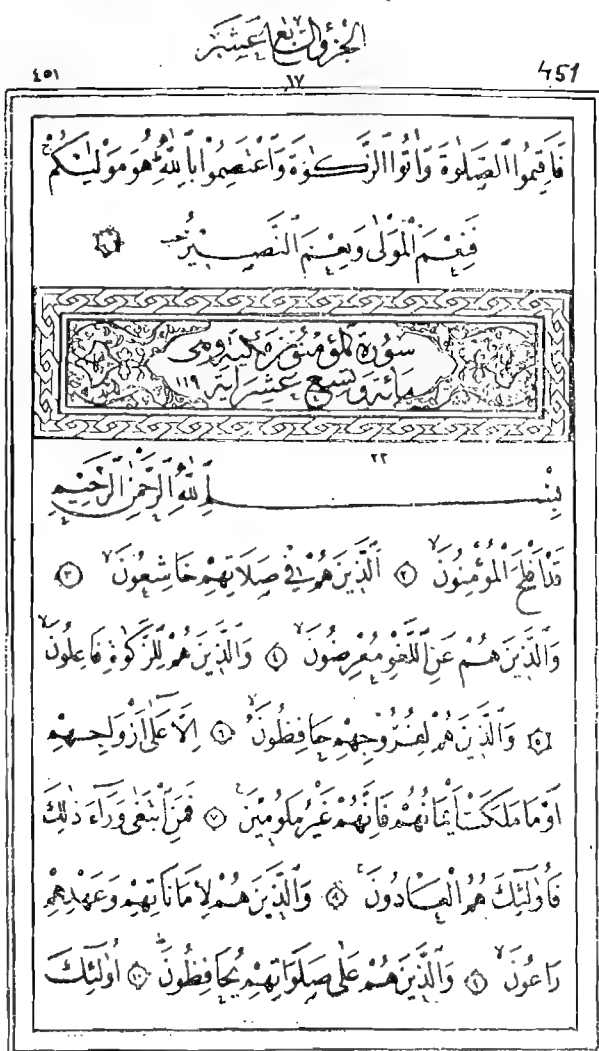 الجزؤ السابع عشر
٤٥١ ١٧ 451
فَاَقِيمُوا الصَّلٰوةَ وَاٰتُوا الزَّكٰوةَ وَاعْتَصِمُوا بِاللّٰهِ هُوَ مَوْلٰيكُمْ
فَنِعْمَ الْمَوْلٰى وَنِعْمَ النَّصِيرُ
سورة المؤمنون مكية وهى
مائة وتسع عشر اية ١١٩
٢٣
بِسْمِ اللّٰهِ الرَّحْمٰنِ الرَّحِيمِ
قَدْ اَفْلَحَ الْمُؤْمِنُونَ ۝٢ اَلَّذِينَ هُمْ فِى صَلَاتِهِمْ خَاشِعُونَ ۝٣
وَالَّذِينَ هُمْ عَنِ اللَّغْوِ مُعْرِضُونَ ۝٤ وَالَّذِينَ هُمْ لِلزَّكٰوةِ فَاعِلُونَ
۝٥ وَالَّذِينَ هُمْ لِفُرُوجِهِمْ حَافِظُونَ ۝٦ اِلَّا عَلٰٓى اَزْوَاجِهِمْ
اَوْ مَا مَلَكَتْ اَيْمَانُهُمْ فَاِنَّهُمْ غَيْرُ مَلُومِينَ ۝٧ فَمَنِ ابْتَغٰى وَرَآءَ ذٰلِكَ
فَاُولٰٓئِكَ هُمُ الْعَادُونَ ۝٨ وَالَّذِينَ هُمْ لِاَمَانَاتِهِمْ وَعَهْدِهِمْ
رَاعُونَ ۝٩ وَالَّذِينَ هُمْ عَلٰى صَلَوَاتِهِمْ يُحَافِظُونَ ۝١٠ اُولٰٓئِكَ